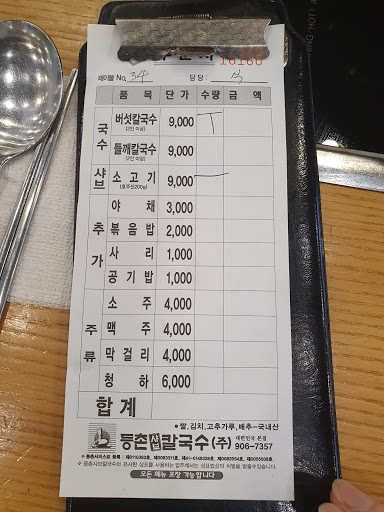 10160
테이블 No. 34 담당 :
품 목 단 가 수량 금 액
국수 버섯칼국수 (2인 이상) 9,000 T
들깨칼국수 (2인 이상) 9,000
샤브 소고기 (호주산200g) 9,000 一
추가 야 채 3,000
볶음밥 2,000
사 리 1,000
공기밥 1,000
주류 소 주 4,000
맥 주 4,000
막걸리 4,000
청 하 6,000
합 계
● 쌀, 김치, 고추가루, 배추-국내산
등촌샤브칼국수(주) 대한민국 본점 906-7357
모든 메뉴 포장 가능합니다